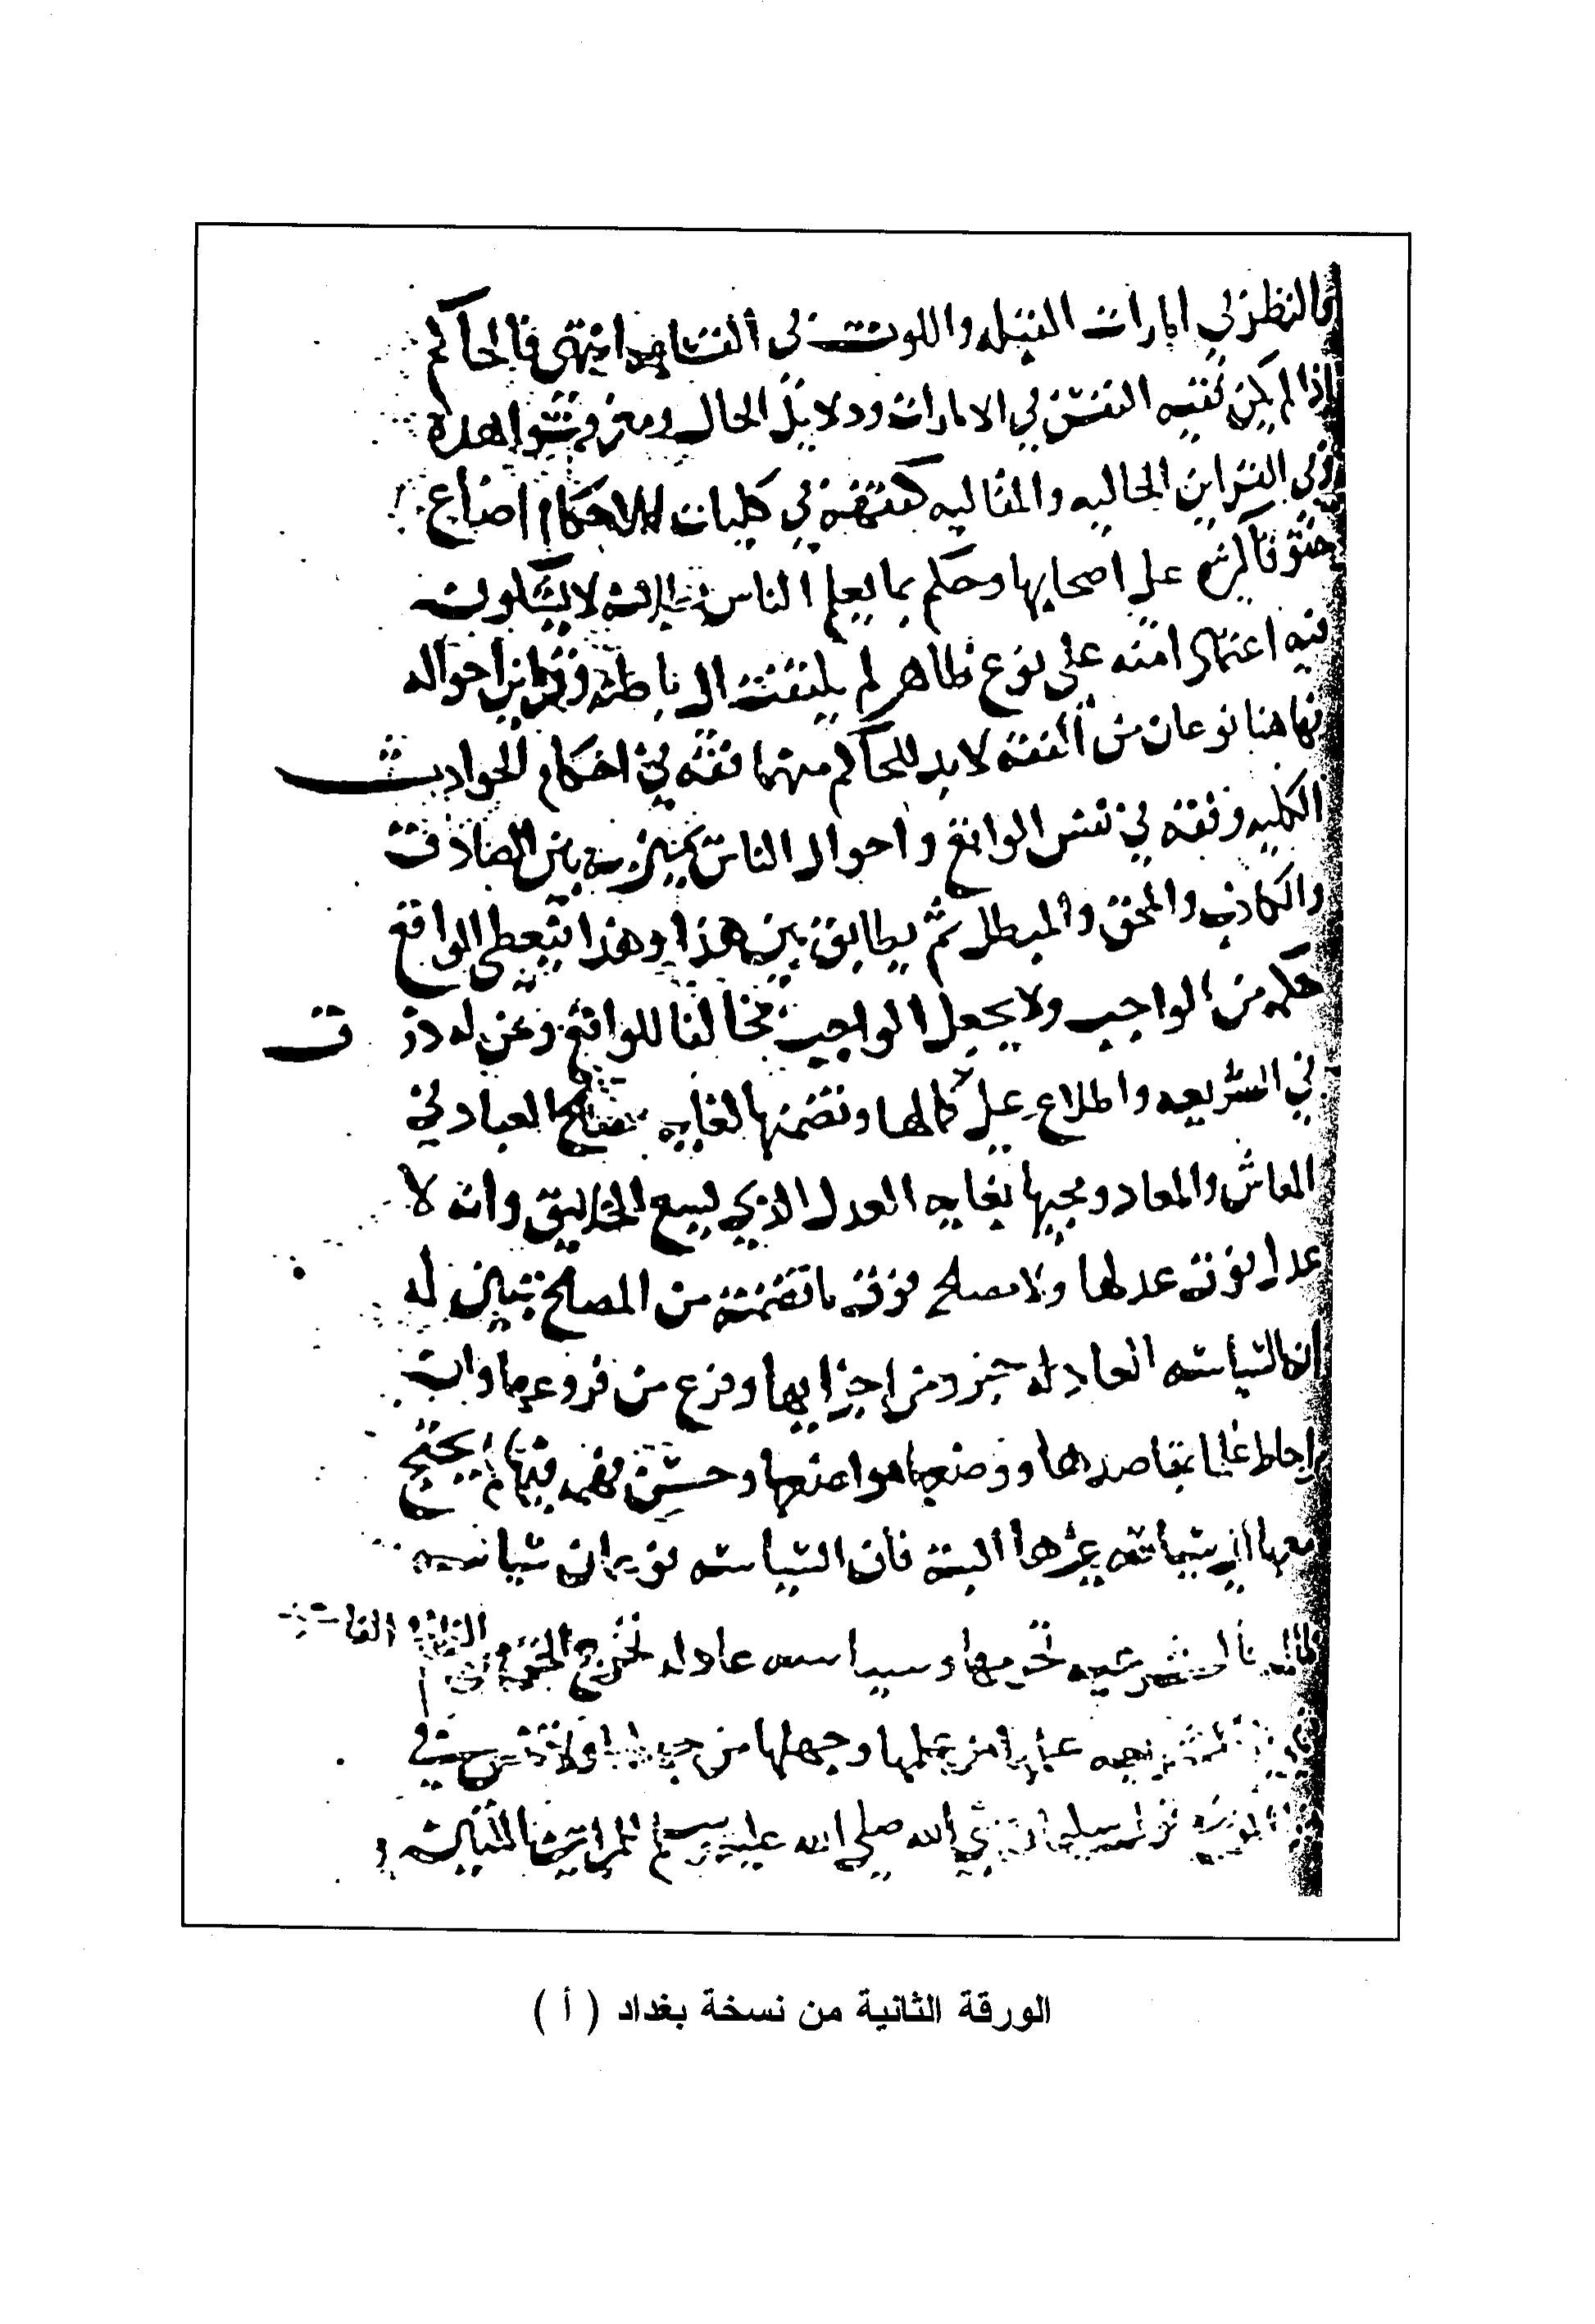 والنظر في امارات القبله واللوث في القسامه انتهى فالحاكم
اذا لم يكن فقيه النفس في الامارات ودلايل الحال ومعرفه شواهده
وفي القراين الحاليه والمقاليه كفقهه في كليات الاحكام اضاع
حقوقا كثيره على اصحابها وحكم بما يعلم الناس بطلانه لا يشكون
فيه اعتمادا منه على نوع ظاهر لم يلتفت الى باطنه وقراين احواله
فهاهنا نوعان من الفقه لابد للحاكم منهما فقه في احكام الحوادث
الكليه وفقه في نفس الواقع واحوال الناس يميز به بين الصادق
والكاذب والمحق والمبطل ثم يطابق بين هذا وهذا فيعطي الواقع
حكمه من الواجب ولا يجعل الواجب مخالفا للواقع ومن له ذوق
في الشريعه واطلاع على كمالها وتضمنها لغايه مصالح العباد في
المعاش والمعاد ومجيها بغايه العدل الذي يسع الخلايق وانه لا
عدل فوق عدلها ولا مصلحه فوق ما تضمنته من المصلح تبين له
ان السياسه العادله جزو من اجزايها وفرع من فروعها وان من
احاط علما بمقاصدها ووضعها مواضعها وحسن فهمه فيها لم يحتج
معها الى سياسه غيرها البته فان السياسه نوعان سياسه
ظالمه فالشريعه تحرمها وسياسه عادله تخرج الحق من الظالم الفاجر
فهي من الشريعه علمها من علمها وجهلها من جهلها ولا تنس في
هذا الموضع قول سليمان نبي الله صلى الله عليه وسلم للمراتين اللتين
الورقة الثانية من نسخة بغداد ( أ )